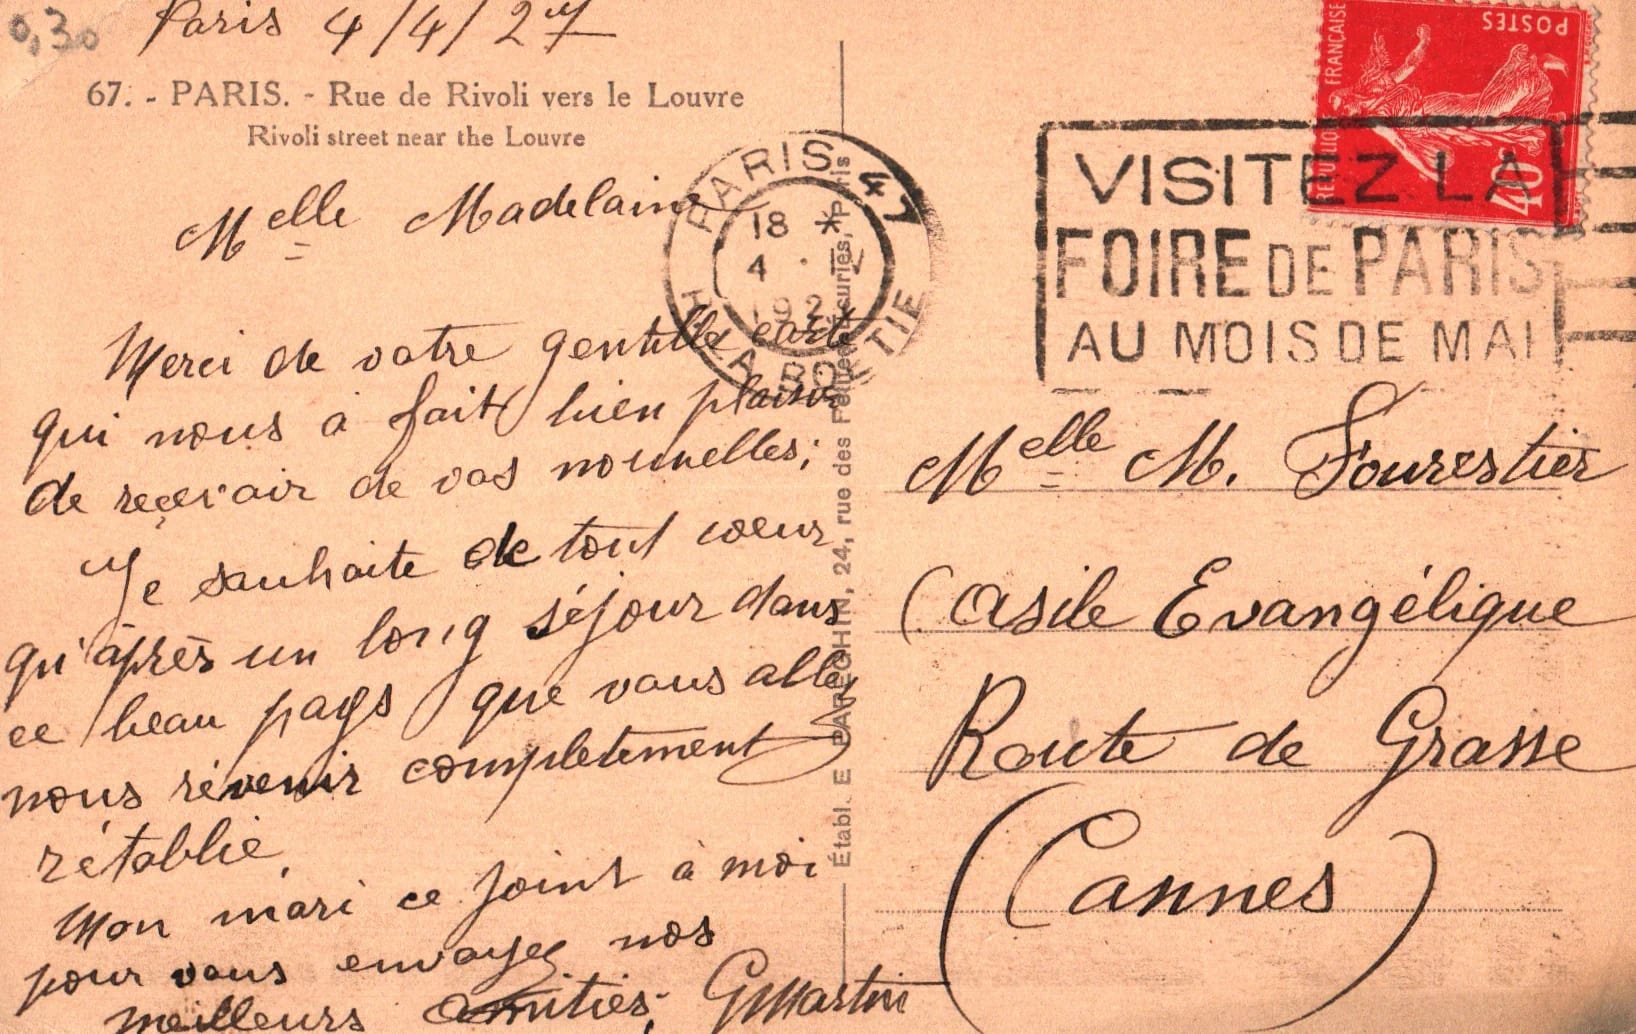 0,30
Paris 4/4/27
67. - PARIS. - Rue de Rivoli vers le Louvre
Rivoli street near the Louvre
Melle Madelaine
Merci de votre gentille carte
qui nous à fait bien plaisir
de reçevoir de vos nouvelles;
Je souhaite de tout coeur
qu'àprès un long séjour dans
ce beau pays que vous allez
nous révenir completement
rétablie.
Mon mari ce joint à moi
pour vous envoyez nos
meilleurs amitiés; GMartin
PARIS 47
18 *
4 · IV
192
R. LA BOETIE
Établ. E PARÉGHIN, 24, rue des Petites Écuries, Paris
REPUBLIQUE FRANÇAISE
POSTES
40
VISITEZ LA
FOIRE DE PARIS
AU MOIS DE MAI
Melle M. Fourestier
(Asile Evangélique
Route de Grasse
(Cannes)